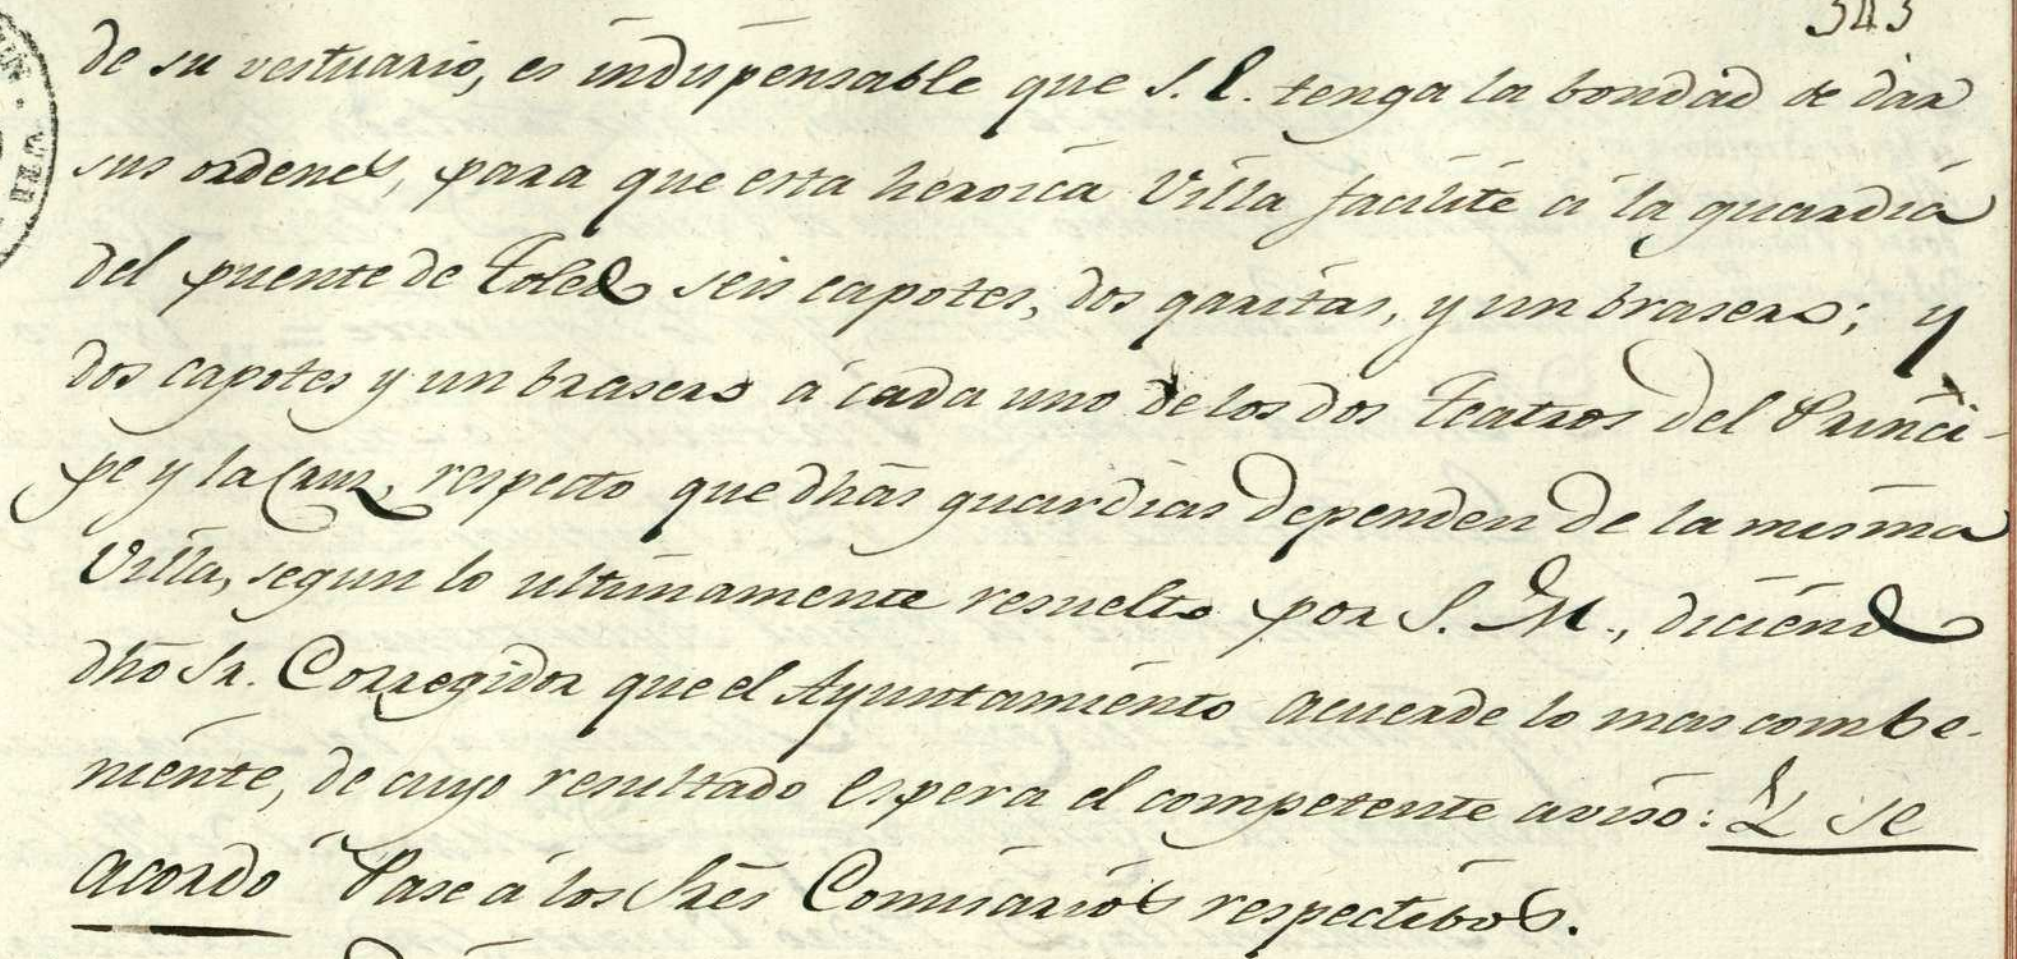 343
de su vestuario, es indispensable que S. E. tenga la bondad de dar
sus ordenes, para que esta heroica Villa facilite á la guardia
del puente de Toledo seis capotes, dos garitas, y un brasero; y
dos capotes y un brasero á cada uno de los dos Teatros del Princi-
pe y la Cruz, respecto que dhas guardias dependen de la misma
Villa, segun lo ultimamente resuelto por S. M., diciendo
dho Sr. Corregidor que el Ayuntamiento acuerde lo mas combe-
niente, de cuyo resultado espera el competente aviso: Y se
acordó Pase á los Sres Comisarios respectibos.